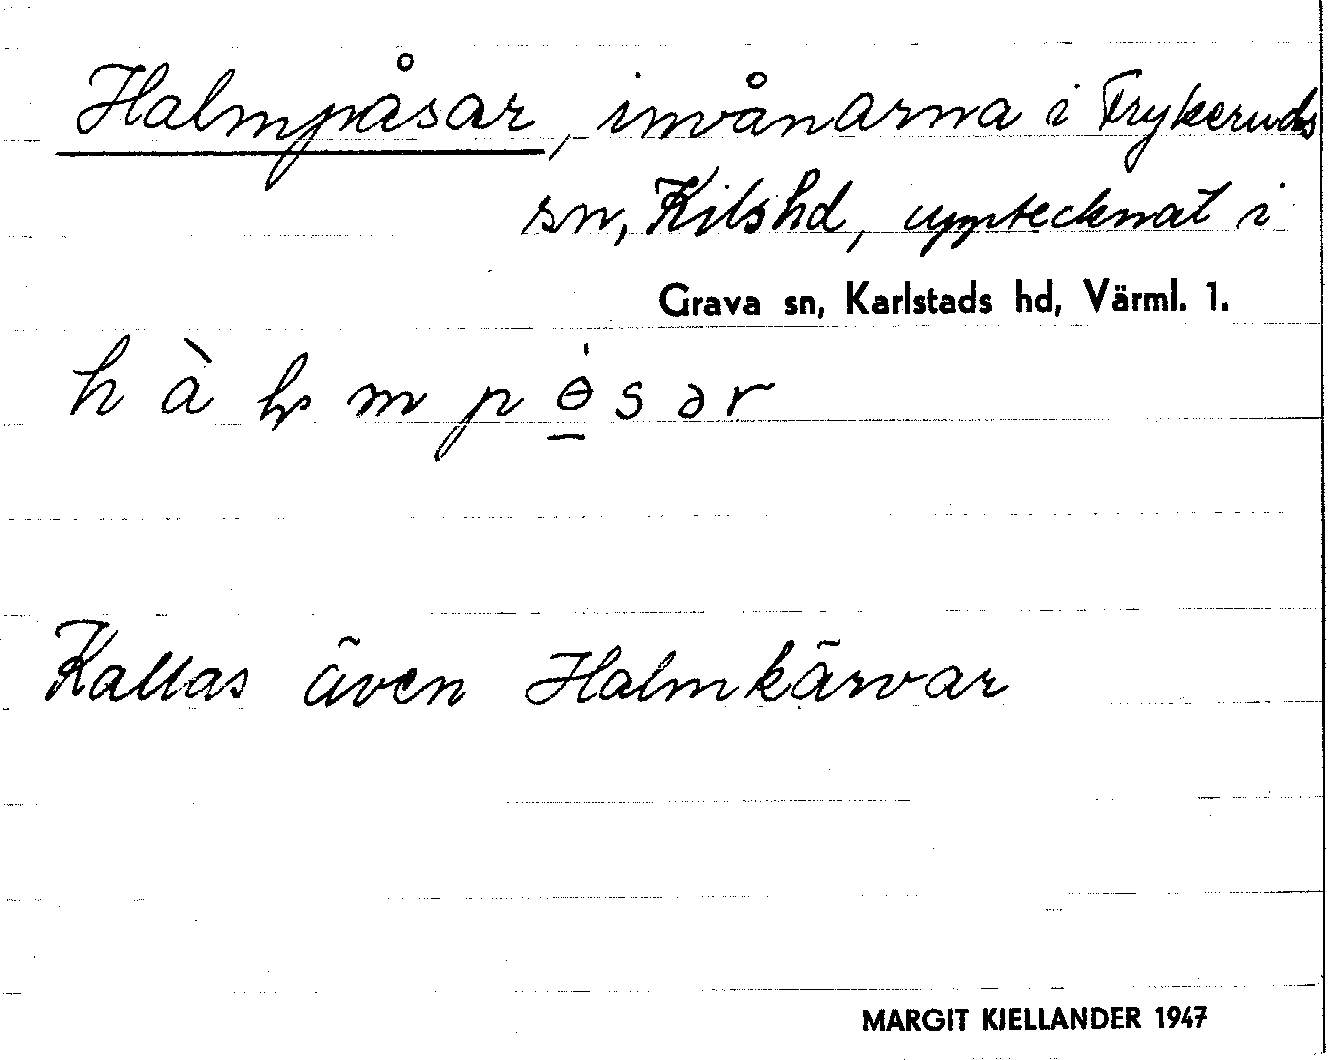 Halmpåsar, invånarna i Frykeruds
sn, Kilshd, upptecknat i
Grava sn, Karlstads hd, Värml. 1.
h à ɫ m p ɵ̠́ s ə r
Kallas även Halmkärvar
MARGIT KIELLANDER 1947